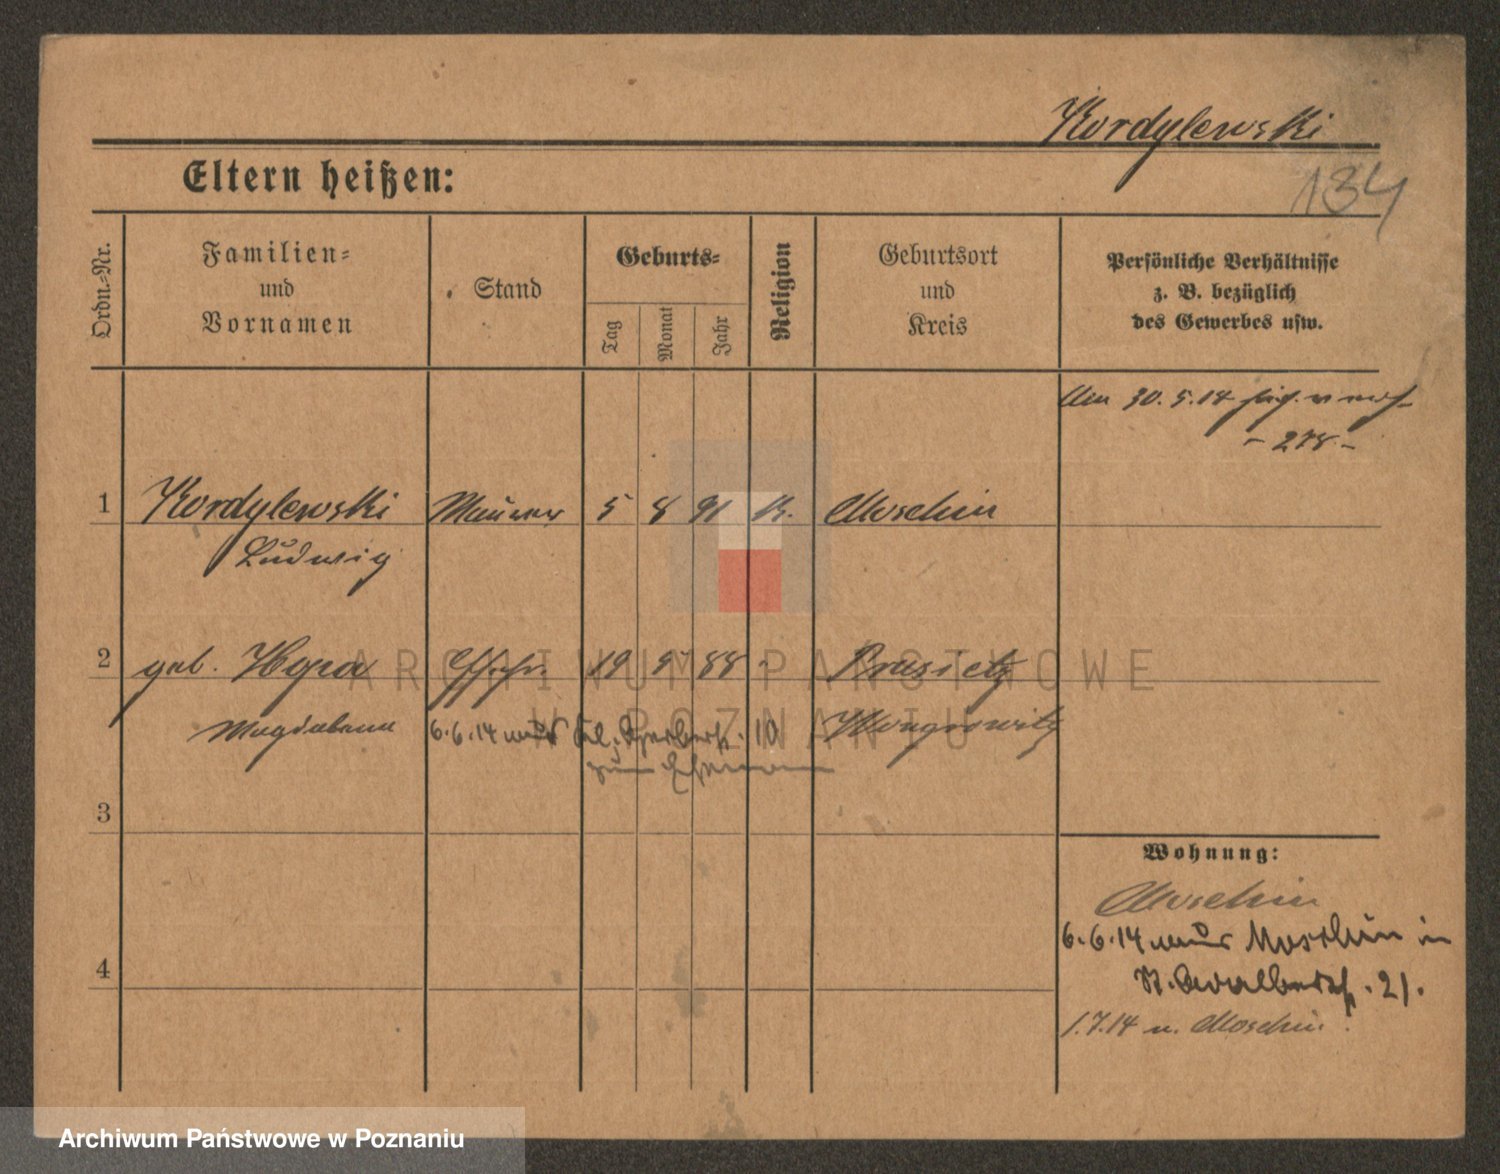 Kordylewski
134
Eltern heißen:
Ordn.-Nr.
Familien-
und
Vornamen
Stand
Geburts-
Tag
Monat
Jahr
Religion
Geburtsort
und
Kreis
Persönliche Verhältnisse
z. B. bezüglich
des Gewerbes usw.
30. 5. 14
- 278 -
1 Kordylewski Maurer 5 8 91 K. Moschin
Ludwig
2 geb. Hyra Ehefr. 19 5 88 Prusietz
Magdalena Wongrowitz
6.6.14 10
zum Ehemann
3
4
Wohnung:
Moschin
6.6.14 Moschin in
St. Adalbertst. 21.
1.7.14 n. Moschin.
ARCHIWUM PAŃSTWOWE
W POZNANIU
Archiwum Państwowe w Poznaniu